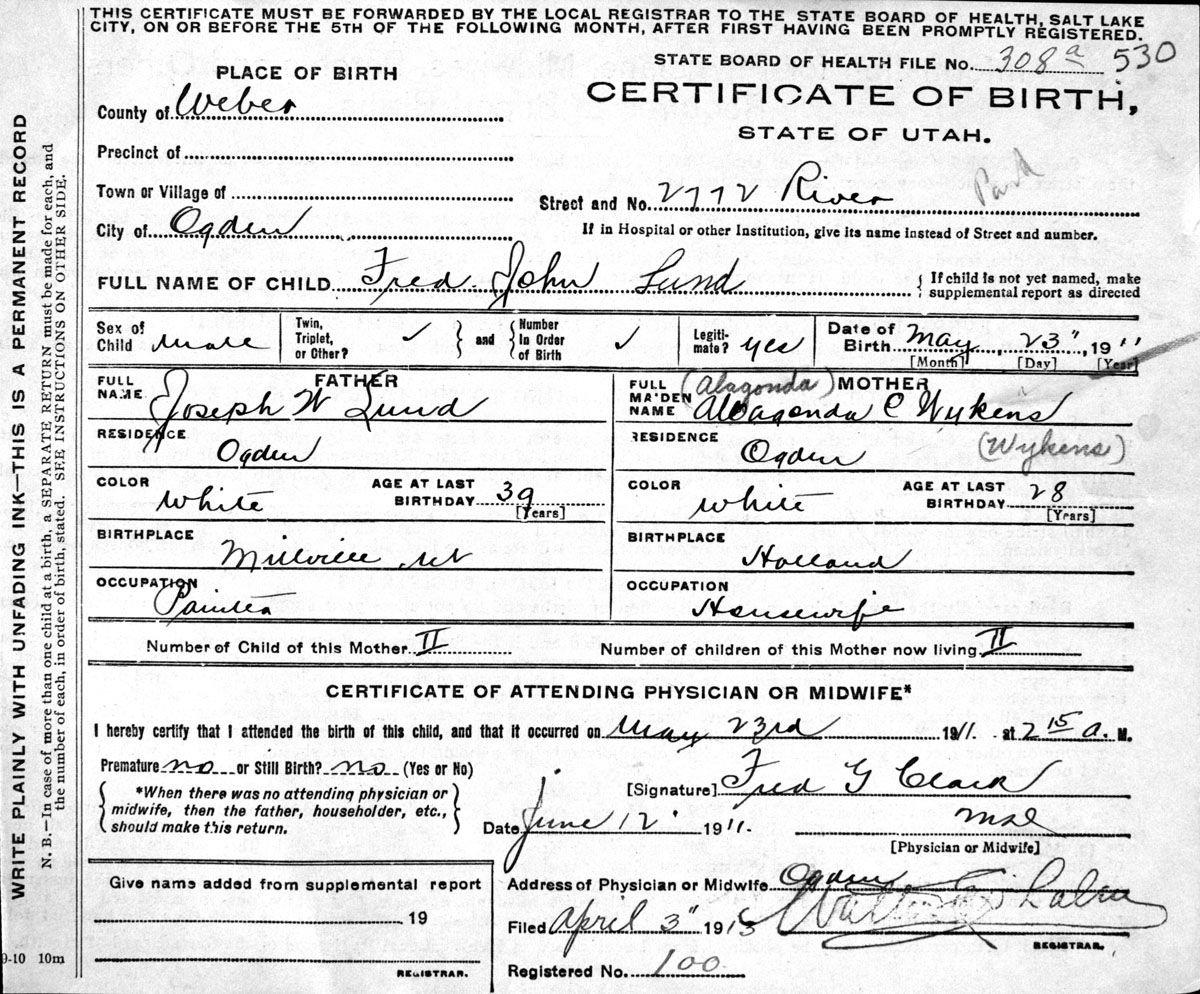 THIS CERTIFICATE MUST BE FORWARDED BY THE LOCAL REGISTRAR TO THE STATE BOARD OF HEALTH, SALT LAKE
CITY, ON OR BEFORE THE 5TH OF THE FOLLOWING MONTH, AFTER FIRST HAVING BEEN PROMPTLY REGISTERED.
WRITE PLAINLY WITH UNFADING INK—THIS IS A PERMANENT RECORD
N. B.—In case of more than one child at a birth, a SEPARATE RETURN must be made for each, and
the number of each, in order of birth, stated. SEE INSTRUCTIONS ON OTHER SIDE.
STATE BOARD OF HEALTH FILE No. 308a 530
PLACE OF BIRTH
CERTIFICATE OF BIRTH,
STATE OF UTAH.
County of Weber
Precinct of
Town or Village of
Street and No. 2772 River
City of Ogden
If in Hospital or other Institution, give its name instead of Street and number.
FULL NAME OF CHILD Fred John Lund { If child is not yet named, make
supplemental report as directed
Sex of Child male
Twin, Triplet, or Other? ✓ } and { Number In Order of Birth ✓
Legitimate? yes
Date of Birth May, 23", 1911
[Month] [Day] [Year]
FATHER
FULL NAME Joseph W Lund
(Alagonda) MOTHER
FULL MAIDEN NAME C Wykens
RESIDENCE Ogden
RESIDENCE Ogden (Wykens)
COLOR White AGE AT LAST BIRTHDAY 39 [Years]
COLOR White AGE AT LAST BIRTHDAY 28 [Years]
BIRTHPLACE Millville
BIRTHPLACE Holland
OCCUPATION Painter
OCCUPATION Housewife
Number of Child of this Mother II Number of children of this Mother now living II
CERTIFICATE OF ATTENDING PHYSICIAN OR MIDWIFE*
I hereby certify that I attended the birth of this child, and that it occurred on May 23rd 1911. at 2 15 a. M.
Premature no or Still Birth? no (Yes or No)
[Signature] Fred G Clark
{ *When there was no attending physician or
midwife, then the father, householder, etc.,
should make this return. }
Date June 12" 1911.
[Physician or Midwife]
Give name added from supplemental report
19
REGISTRAR.
Address of Physician or Midwife Ogden
Filed April 3" 1913
REGISTRAR.
Registered No. 100
9-10 10m